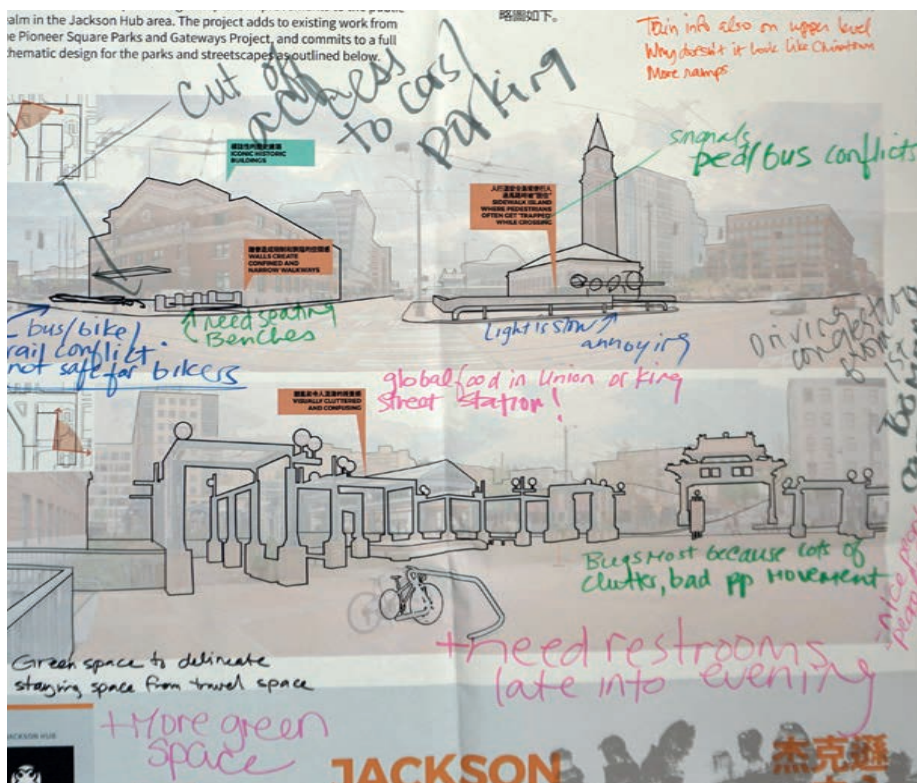 alm in the Jackson Hub area. The project adds to existing work from
e Pioneer Square Parks and Gateways Project, and commits to a full
hematic design for the parks and streetscapes as outlined below.
略圖如下。
Train info also on upper level
Why doesn't it look like Chinatown
More ramps
Cut off
access
to cars/
parking
ICONIC HISTORIC
BUILDINGS
WALLS CREATE
CONFINED AND
NARROW WALKWAYS
signals
ped/bus conflicts
SIDEWALK ISLAND
WHERE PEDESTRIANS
OFTEN GET "TRAPPED"
WHILE CROSSING
bus/bike/
rail conflict.
not safe for bikers
need
Benches
Light is slow
annoying
Driving
congestion
from
1st
global food in Union or King
Street Station!
VISUALLY CLUTTERED
AND CONFUSING
Bugs most because lots of
clutter, bad pp movement
nice
Green space to delineate
staying space from travel space
+need restrooms
late into evening
+More green
space
JACKSON HUB
JACKSON
杰克遜